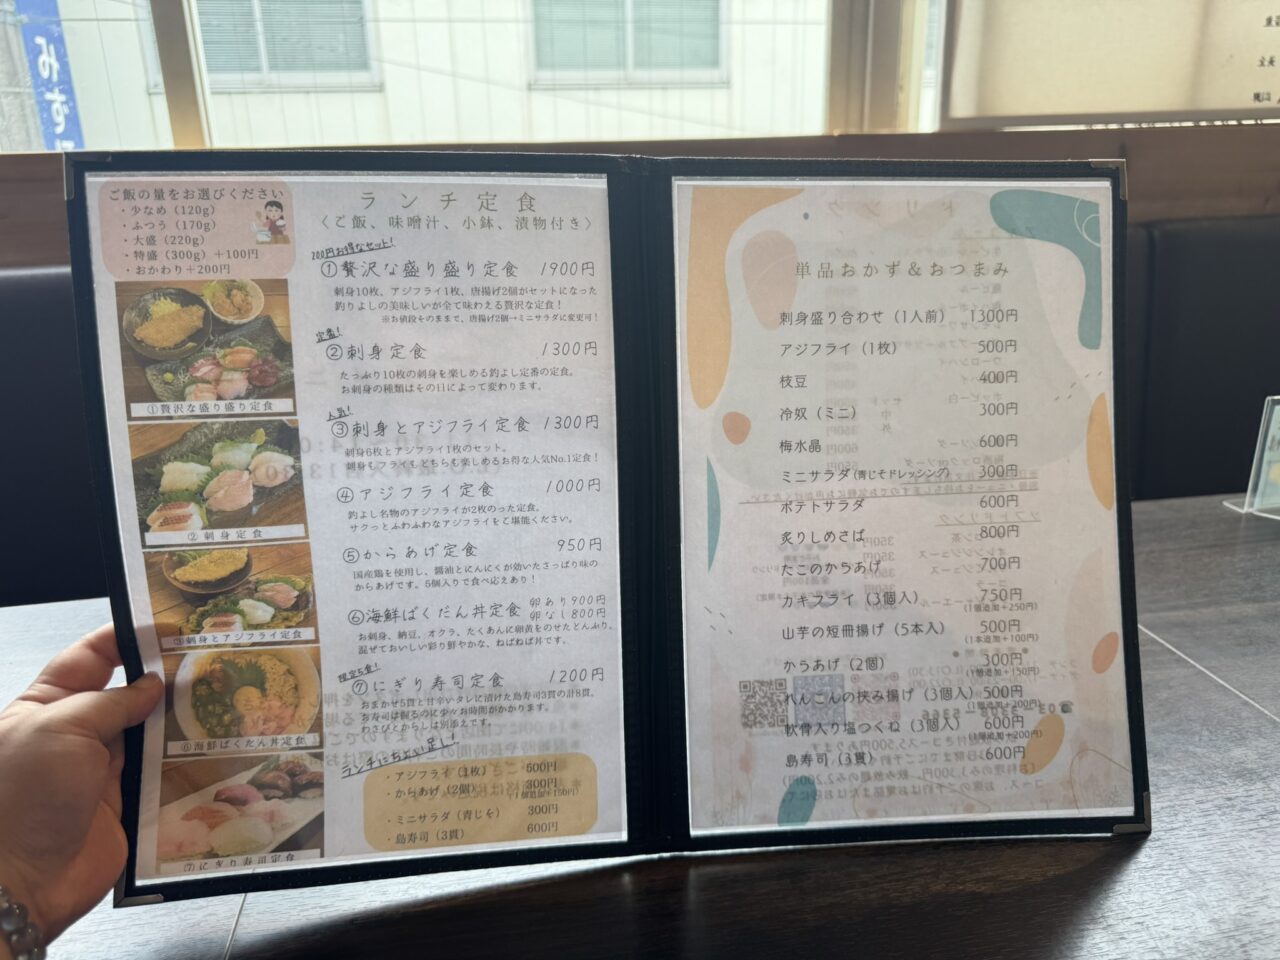 みず
ご飯の量をお選びください
・少なめ（120g）
・ふつう（170g）
・大盛（220g）
・特盛（300g）＋100円
・おかわり＋200円
①贅沢な盛り盛り定食
②刺身定食
③刺身とアジフライ定食
⑥海鮮ばくだん丼定食
⑦にぎり寿司定食
ランチ定食
〈ご飯、味噌汁、小鉢、漬物付き〉
200円お得なセット!
①贅沢な盛り盛り定食 1900円
刺身10枚、アジフライ1枚、唐揚げ2個がセットになった
釣りよしの美味しいが全て味わえる贅沢な定食！
※お値段そのままで、唐揚げ2個→ミニサラダに変更可！
定番!
②刺身定食 1300円
たっぷり10枚の刺身を楽しめる釣よし定番の定食。
お刺身の種類はその日によって変わります。
人気!
③刺身とアジフライ定食 1300円
刺身6枚とアジフライ1枚のセット。
刺身もフライもどちらも楽しめるお得な人気No.1定食！
④アジフライ定食 1000円
釣よし名物のアジフライが2枚のった定食。
サクっとふわふわなアジフライをご堪能ください。
⑤からあげ定食 950円
国産鶏を使用し、醤油とにんにくが効いたさっぱり味の
からあげです。5個入りで食べ応えあり！
⑥海鮮ばくだん丼定食 卵あり900円
卵なし800円
お刺身、納豆、オクラ、たくあんに卵黄をのせたどんぶり。
混ぜておいしい彩り鮮やかな、ねばねば丼です。
限定5食!
⑦にぎり寿司定食 1200円
おまかせ5貫と甘辛いタレに漬けた島寿司3貫の計8貫。
お寿司は握るのに少々お時間がかかります。
わさびとからしは別添えです。
ランチにちょい足し!
・アジフライ（1枚） 500円
・からあげ（2個） 300円
（1個追加＋150円）
・ミニサラダ（青じそ） 300円
・島寿司（3貫） 600円
単品おかず＆おつまみ
刺身盛り合わせ（1人前） 1300円
アジフライ（1枚） 500円
枝豆 400円
冷奴（ミニ） 300円
梅水晶 600円
ミニサラダ（青じそドレッシング） 300円
ポテトサラダ 600円
炙りしめさば 800円
たこのからあげ 700円
カキフライ（3個入） 750円
（1個追加＋250円）
山芋の短冊揚げ（5本入） 500円
（1本追加＋100円）
からあげ（2個） 300円
（1個追加＋150円）
れんこんの挟み揚げ（3個入） 500円
（1個追加＋200円）
軟骨入り塩つくね（3個入） 600円
（1個追加＋200円）
島寿司（3貫） 600円